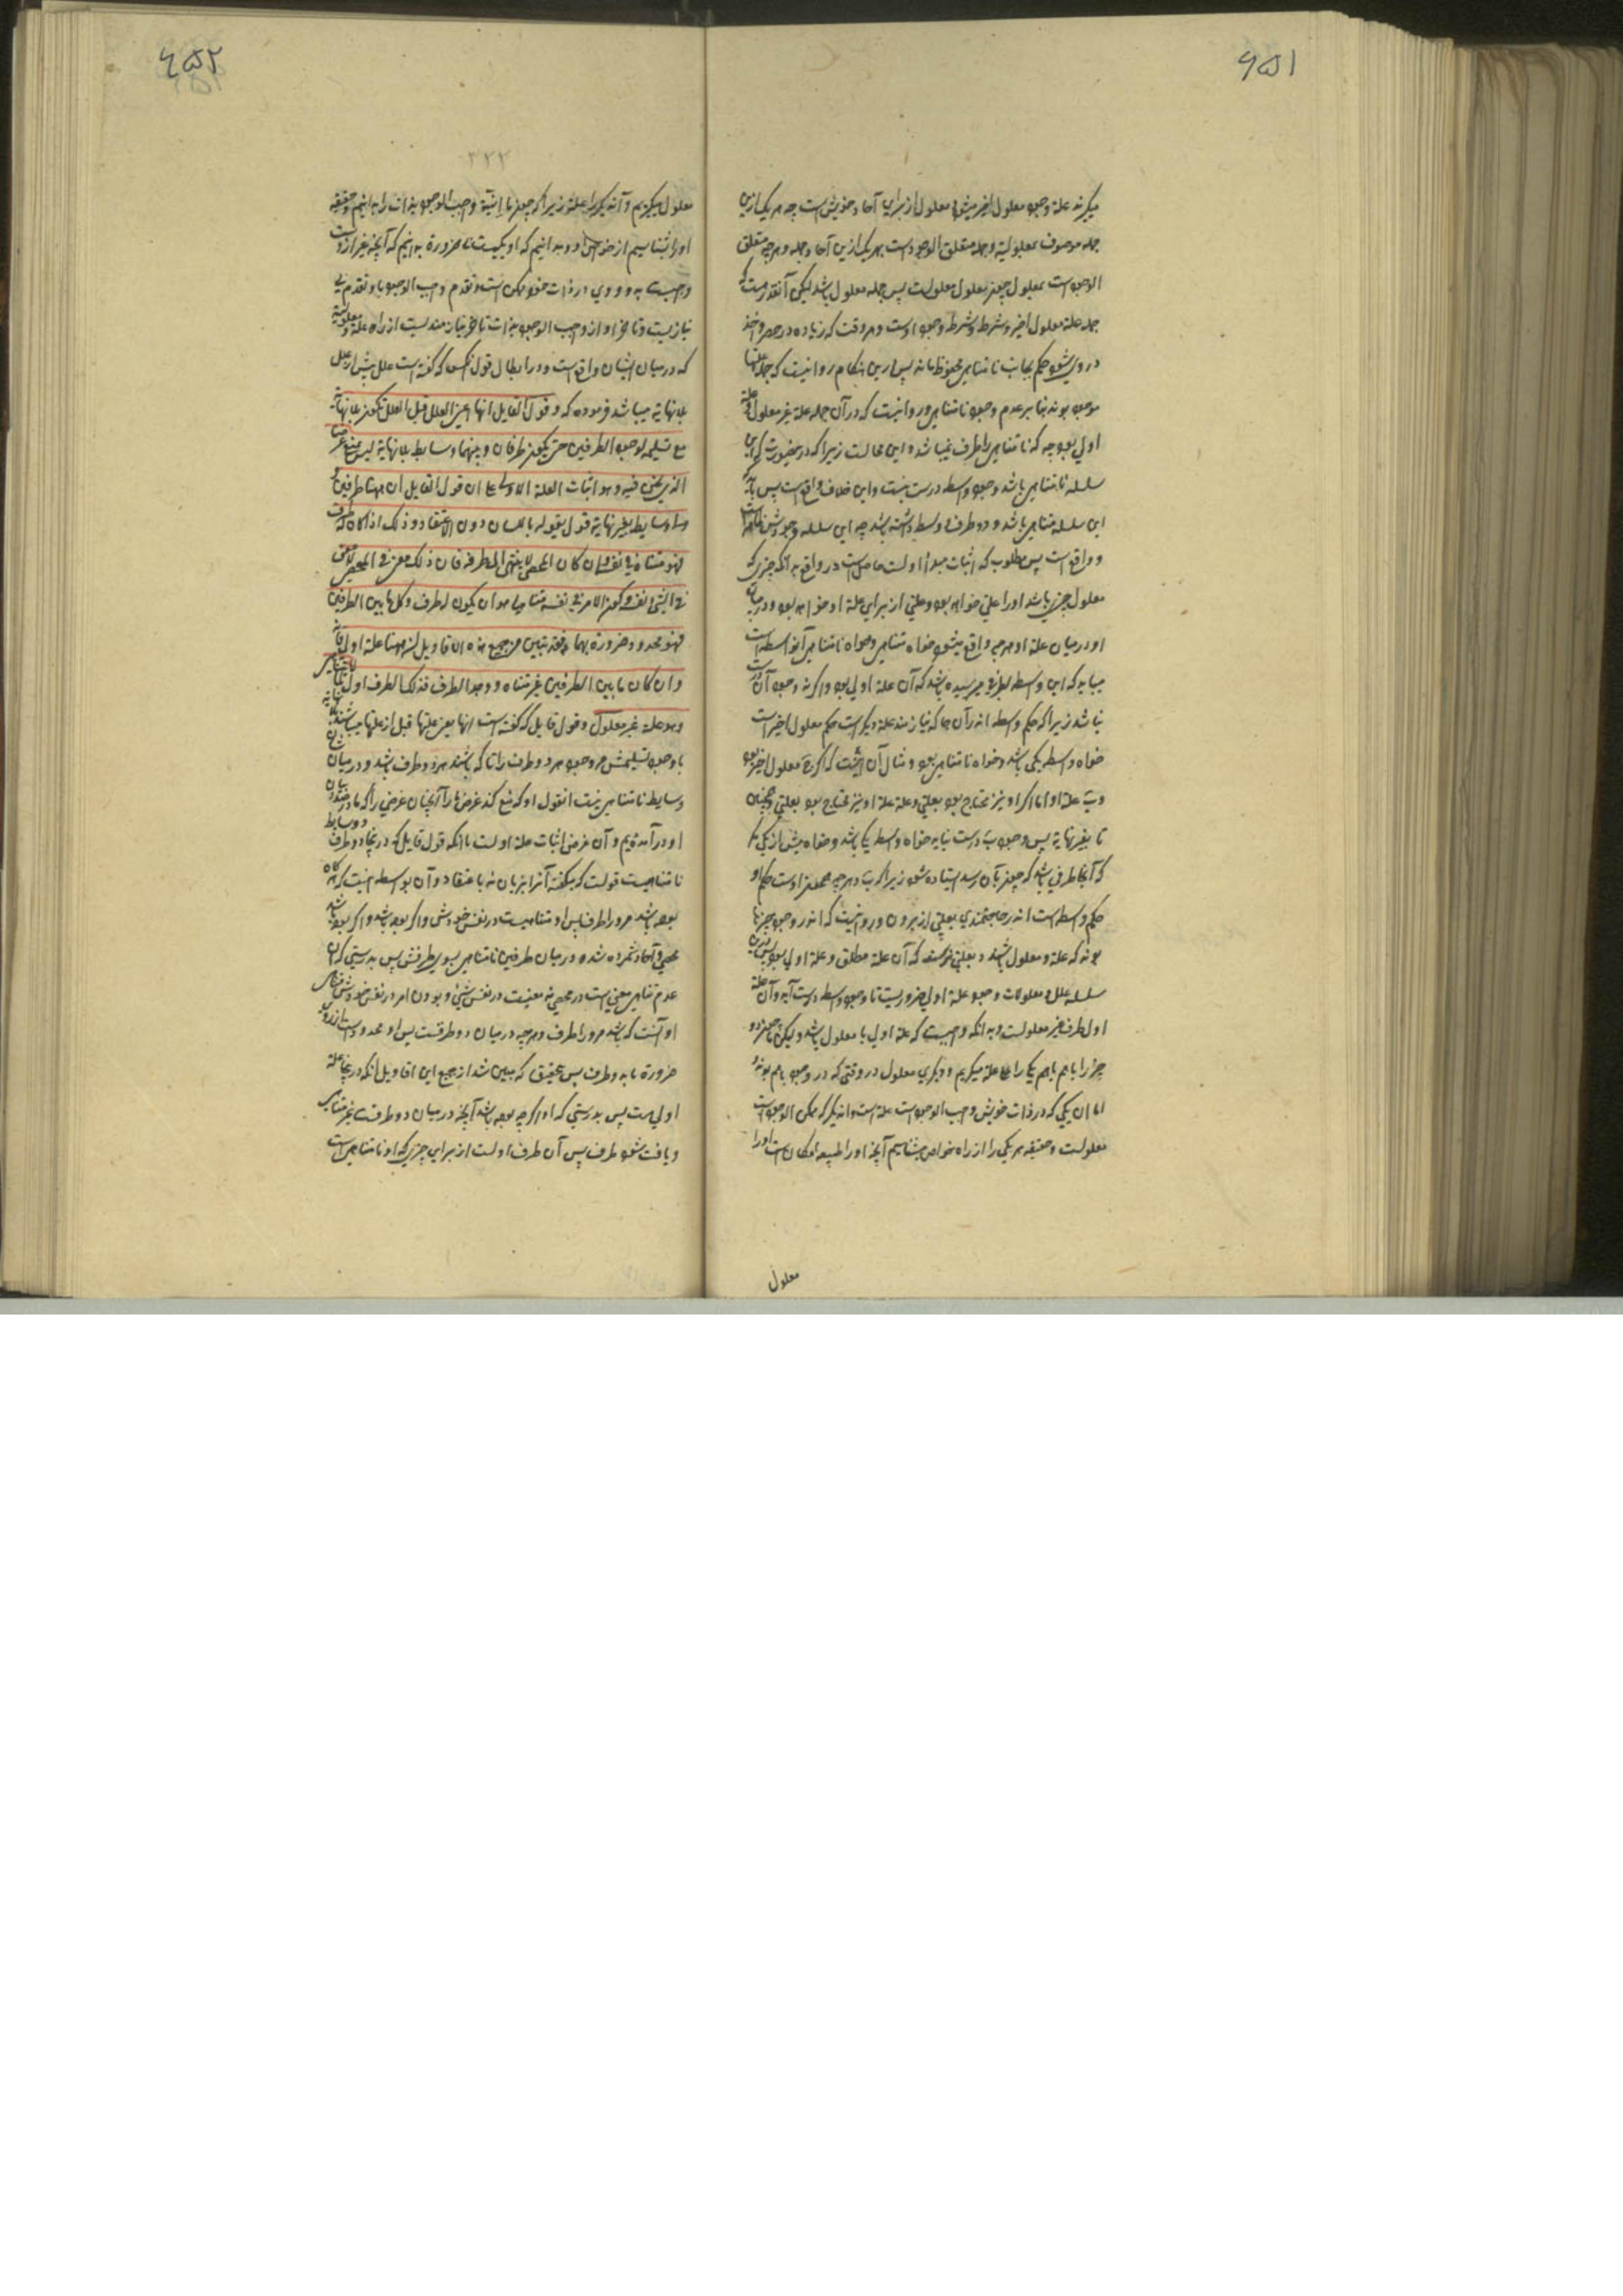 ۶۵۱
میگرند علة وجود معلول اخیر میشود معلول از برای آحاد خویش است چه هر یک ازین
جمله موصوف بمعلولیة وجمله متعلق الوجود است بهر یک ازین آحاد جمله وهرچه متعلق
الوجود است بمعلول چیز معلول معلولست پس جمله معلول باشد لیکن آنقدر هست که
جمله علة معلول اخیر وشرط وجود اوست وهر وقت که زیاده در حصر واخذ
در وی شود حکم بجانب نامتناهی محفوظ ماند پس درین هنگام روا نیست که جمله علتها
موجود بوند بنابر عدم وجود نامتناهی وروا نیست که در آن جمله علة غیر معلول وعلة
اولی بود چه که نامتناهی را طرف نمیباشد واین محالست زیرا که درین صورت که این
سلسله نامتناهی باشد وجود واسطه درست نیست واین خلاف واقع است پس باید که
این سلسله متناهی باشد ودو طرف واسطه داشته باشد چه این سلسله وجودش
وواقع است پس مطلوب که اثبات مبدأ اولست حاصل است در واقع بدانکه چیزی که
معلول چیزی باشد اورا علتی خواهد بود وعلتی از برای علة او خواهد بود ودر میان
او ودر میان علة او هرچه واقع میشود خواه متناهی وخواه نامتناهی آنواسطه است
میباید که این واسطه بطرفی رسیده باشد که آن علة اولی بود واگر نه وجود آن درست
نباشد زیرا که حکم واسطه اندر آن جا که نیازمند علة دیگر است حکم معلول اخیر است
خواه واسطه یکی باشد وخواه نامتناهی بود ومثال آن اینست که اگر ج معلول اخیر بود
وب علة او اما اگر او نیز محتاج بود بعلتی وعلة علة او نیز محتاج بود بعلتی وهمچنان
تا بغیر نهایة پس وجود ب درست نیاید خواه واسطه یکی باشد وخواه بیش از یکی
که آنجا طرفی باشد که چون بآن رسد استاده شود زیرا که ب وهرچه همچنان اوست حکم او
حکم واسطه است اندر حاجتمندی بعلتی از برون وروا نیست که اندر وجود چیزها
بوند که علة ومعلول باشند وبعلتی نرسند که آن علة مطلق وعلة اولی بود پس درین
سلسله علل ومعلولات وجود علة اولی ضروریست تا وجود واسطه درست آید وآن علة
اول طرف غیر معلولست وبدانکه واجبست که علة اولی با معلول باشد ولیکن ما چون دو
چیز را باهم یابیم یکی را علة میگریم ودیگری معلول در وقتی که در وجود باهم بوند
اما آن یکی که در ذات خویش واجب الوجود است علة است واندیگر که ممکن الوجود است
معلولست وحقیقة هر یکی را از راه خواص بشناسیم آنچه اورا طبیعة امکان است اورا
معلول
۶۵۲
۳۲۲
معلول میگریم وآندیگر را علة زیرا که چون ما انیّة واجب الوجود بذات را بدانیم وحقیقة
اورا بشناسیم از خواص او وبدانیم که او یکیست تا ضرورة بدانیم که آنچه غیر ازوست
واجبست بدو ووی در ذات خود ممکن است وتقدم واجب الوجود باو تقدم بی
نیازیست وتاخر او از واجب الوجود بذات تاخر نیازمندیست از راه علة ومعلولیة
که در میان ایشان واقع است ودر ابطال قول انکس که گفته است علل پیش از علل
بلا نهایة میباشد فرموده که وقول القایل انها اعنی العلل قبل العلل تکون بلا نهایة
مع تسلیمه لوجود الطرفین حتی یکون طرفان وبینهما وسایط بلا نهایة لیس یمنع غرضنا
الذی نحن فیه وهو اثبات العلة الاولی علی ان قول القایل ان ههنا طرفین و
وسایط بغیر نهایة قول یقوله باللسان دون الاعتقاد وذلک اذا کان له طرف
فهو متناه فی نفسه وان کان المحصی لا ینتهی الی طرفه فان ذلک معنی فی المحصی لا معنی
فی الشئ نفسه وکون الامر فی نفسه متناهیا هو ان یکون له طرف وکل ما بین الطرفین
فهو محدود ضرورة بهما فقد تبین من جمیع هذه الاقاویل ان ههنا علة اولی فانه
وان کان ما بین الطرفین غیر متناه ووجد الطرف فذلک الطرف اول لما لا یتناهی
وهو علة غیر معلول وقول قایل که گفته است انها یعنی علتها قبل از علتها میباشند بلا نهایة
با وجود تسلیمش مر وجود هر دو طرف را تا که باشند هر دو طرف باشد ودر میان شان
وسایط نامتناهی نیست انقول او که منع کند غرض ما را آنچنان غرضی را که ما در صدد بیان
او در آمدهایم وآن غرض اثبات علة اولست با انکه قول قایل که درینجا دو طرف ووسایط
نامتناهیست قولست که میگفته آنرا بزبان نه باعتقاد وآن بواسطه اینست که هرگاه
بوده باشد مر ورا طرف پس او متناهیست در نفس خودش واگر بوده باشد
محصی وآحاد شمرده شده در میان طرفین نامتناهی بسوی طرفش پس بدرستی که آن
عدم تناهی معنی است در محصی نه معنیست در نفس شئ وبودن امر در نفس خودش متناهی
او آنست که باشد مر ورا طرف وهرچه در میان دو طرفست پس او محدود است از روی
ضرورة بدو طرف پس بتحقیق که مبین شد از جمیع این اقاویل انکه درینجا علة
اولی هست پس بدرستی که او اگرچه بوده باشد آنچه در میان دو طرفست غیر متناهی
ویافت شود طرف پس آن طرف اولست از برای چیزی که او نامتناهی است